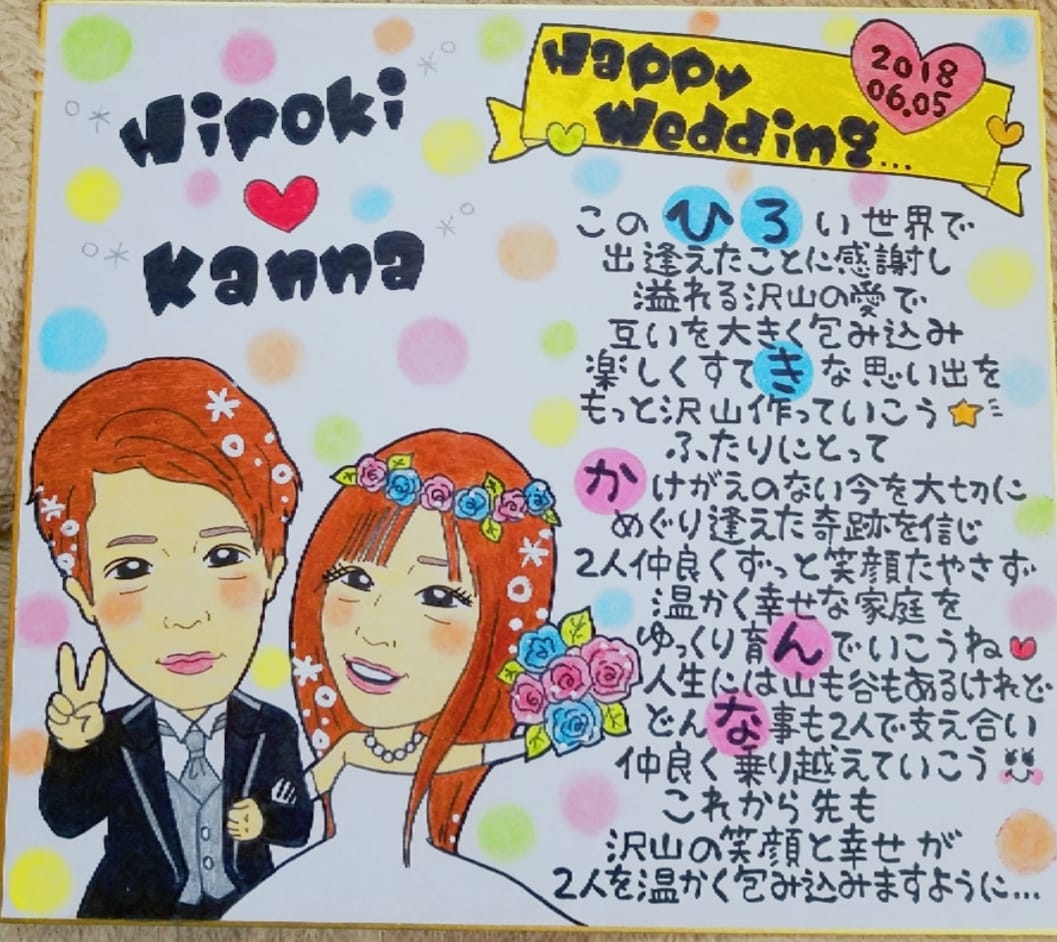 Hiroki
Kanna
Happy
Wedding...
2018
06.05
このひろい世界で
出逢えたことに感謝し
溢れる沢山の愛で
互いを大きく包み込み
楽しくすてきな思い出を
もっと沢山作っていこう
ふたりにとって
かけがえのない今を大切に
めぐり逢えた奇跡を信じ
2人仲良くずっと笑顔たやさず
温かく幸せな家庭を
ゆっくり育んでいこうね
人生には山も谷もあるけれど
どんな事も2人で支え合い
仲良く乗り越えていこう
これから先も
沢山の笑顔と幸せが
2人を温かく包み込みますように...